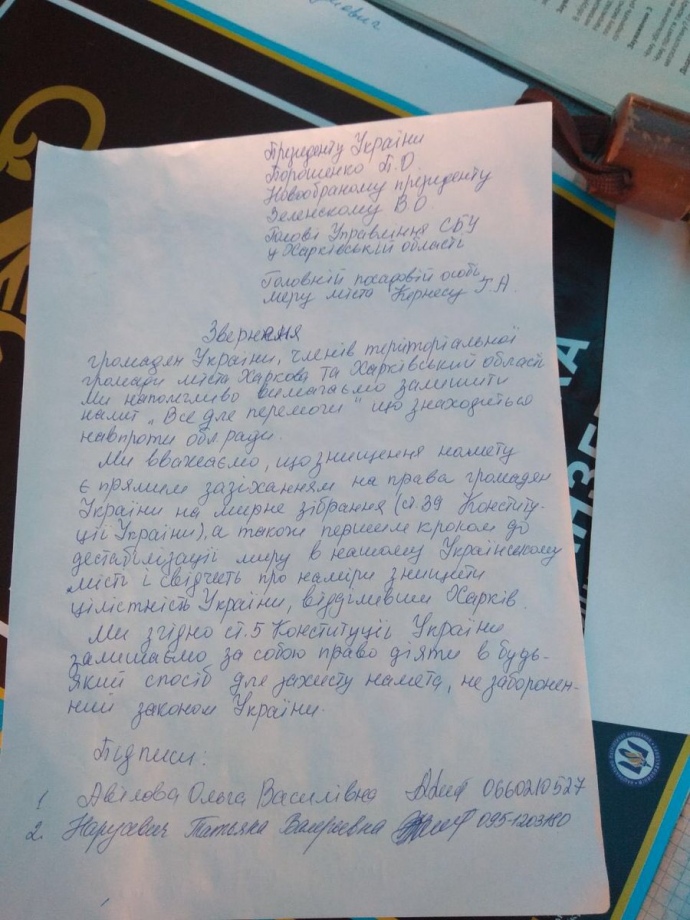 Президенту України
Порошенко П.О
Новообраному президенту
Зеленскому В.О
Голові Управління СБУ
у Харківській області
Головній посадовій особі
меру міста Кернесу Г.А
Звернення
громадян України, членів територіальної
громади міста Харкова та Харківський області
Ми наполегливо вимагаємо залишити
намет „Все для перемоги" що знаходиться
навпроти обл.ради.
Ми вважаємо, що знищення намету
є прямим зазіханням на права громадян
України на мирне зібрання (ст.39 Конститу-
ції України), а також першим кроком до
дестабілізації миру в нашому Українському
місті і свідчить про наміри знищити
цілістність України, відділивши Харків.
Ми згідно ст.5 Конституції України
залишаємо за собою право діяти в будь-
який спосіб для захисту намета, не заборонен-
ний законом України.
Підписи:
1 Авілова Ольга Василівна 0660210527
2. Татьяна Валериевна